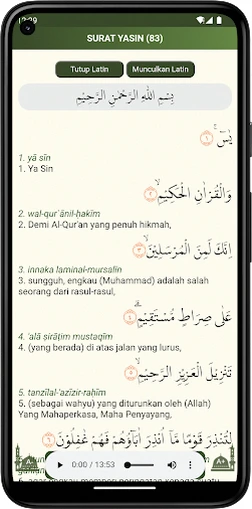 12:29
SURAT YASIN (83)
Tutup Latin
Munculkan Latin
بِسْمِ اللّٰهِ الرَّحْمٰنِ الرَّحِيْمِ
يٰسۤ ۚ ١
1. yā sīn
1. Ya Sin
وَالْقُرْاٰنِ الْحَكِيْمِۙ ٢
2. wal-qur`ānil-ḥakīm
2. Demi Al-Qur'an yang penuh hikmah,
اِنَّكَ لَمِنَ الْمُرْسَلِيْنَۙ ٣
3. innaka laminal-mursalīn
3. sungguh, engkau (Muhammad) adalah salah
seorang dari rasul-rasul,
عَلٰى صِرَاطٍ مُّسْتَقِيْمٍۗ ٤
4. 'alā sirāṭim mustaqīm
4. (yang berada) di atas jalan yang lurus,
تَنْزِيْلَ الْعَزِيْزِ الرَّحِيْمِۙ ٥
5. tanzīlal-'azīzir-raḥīm
5. (sebagai wahyu) yang diturunkan oleh (Allah)
Yang Mahaperkasa, Maha Penyayang,
لِتُنْذِرَ قَوْمًا مَّآ اُنْذِرَ اٰبَاۤؤُهُمْ فَهُمْ غٰفِلُوْنَ ٦
0:00 / 13:53